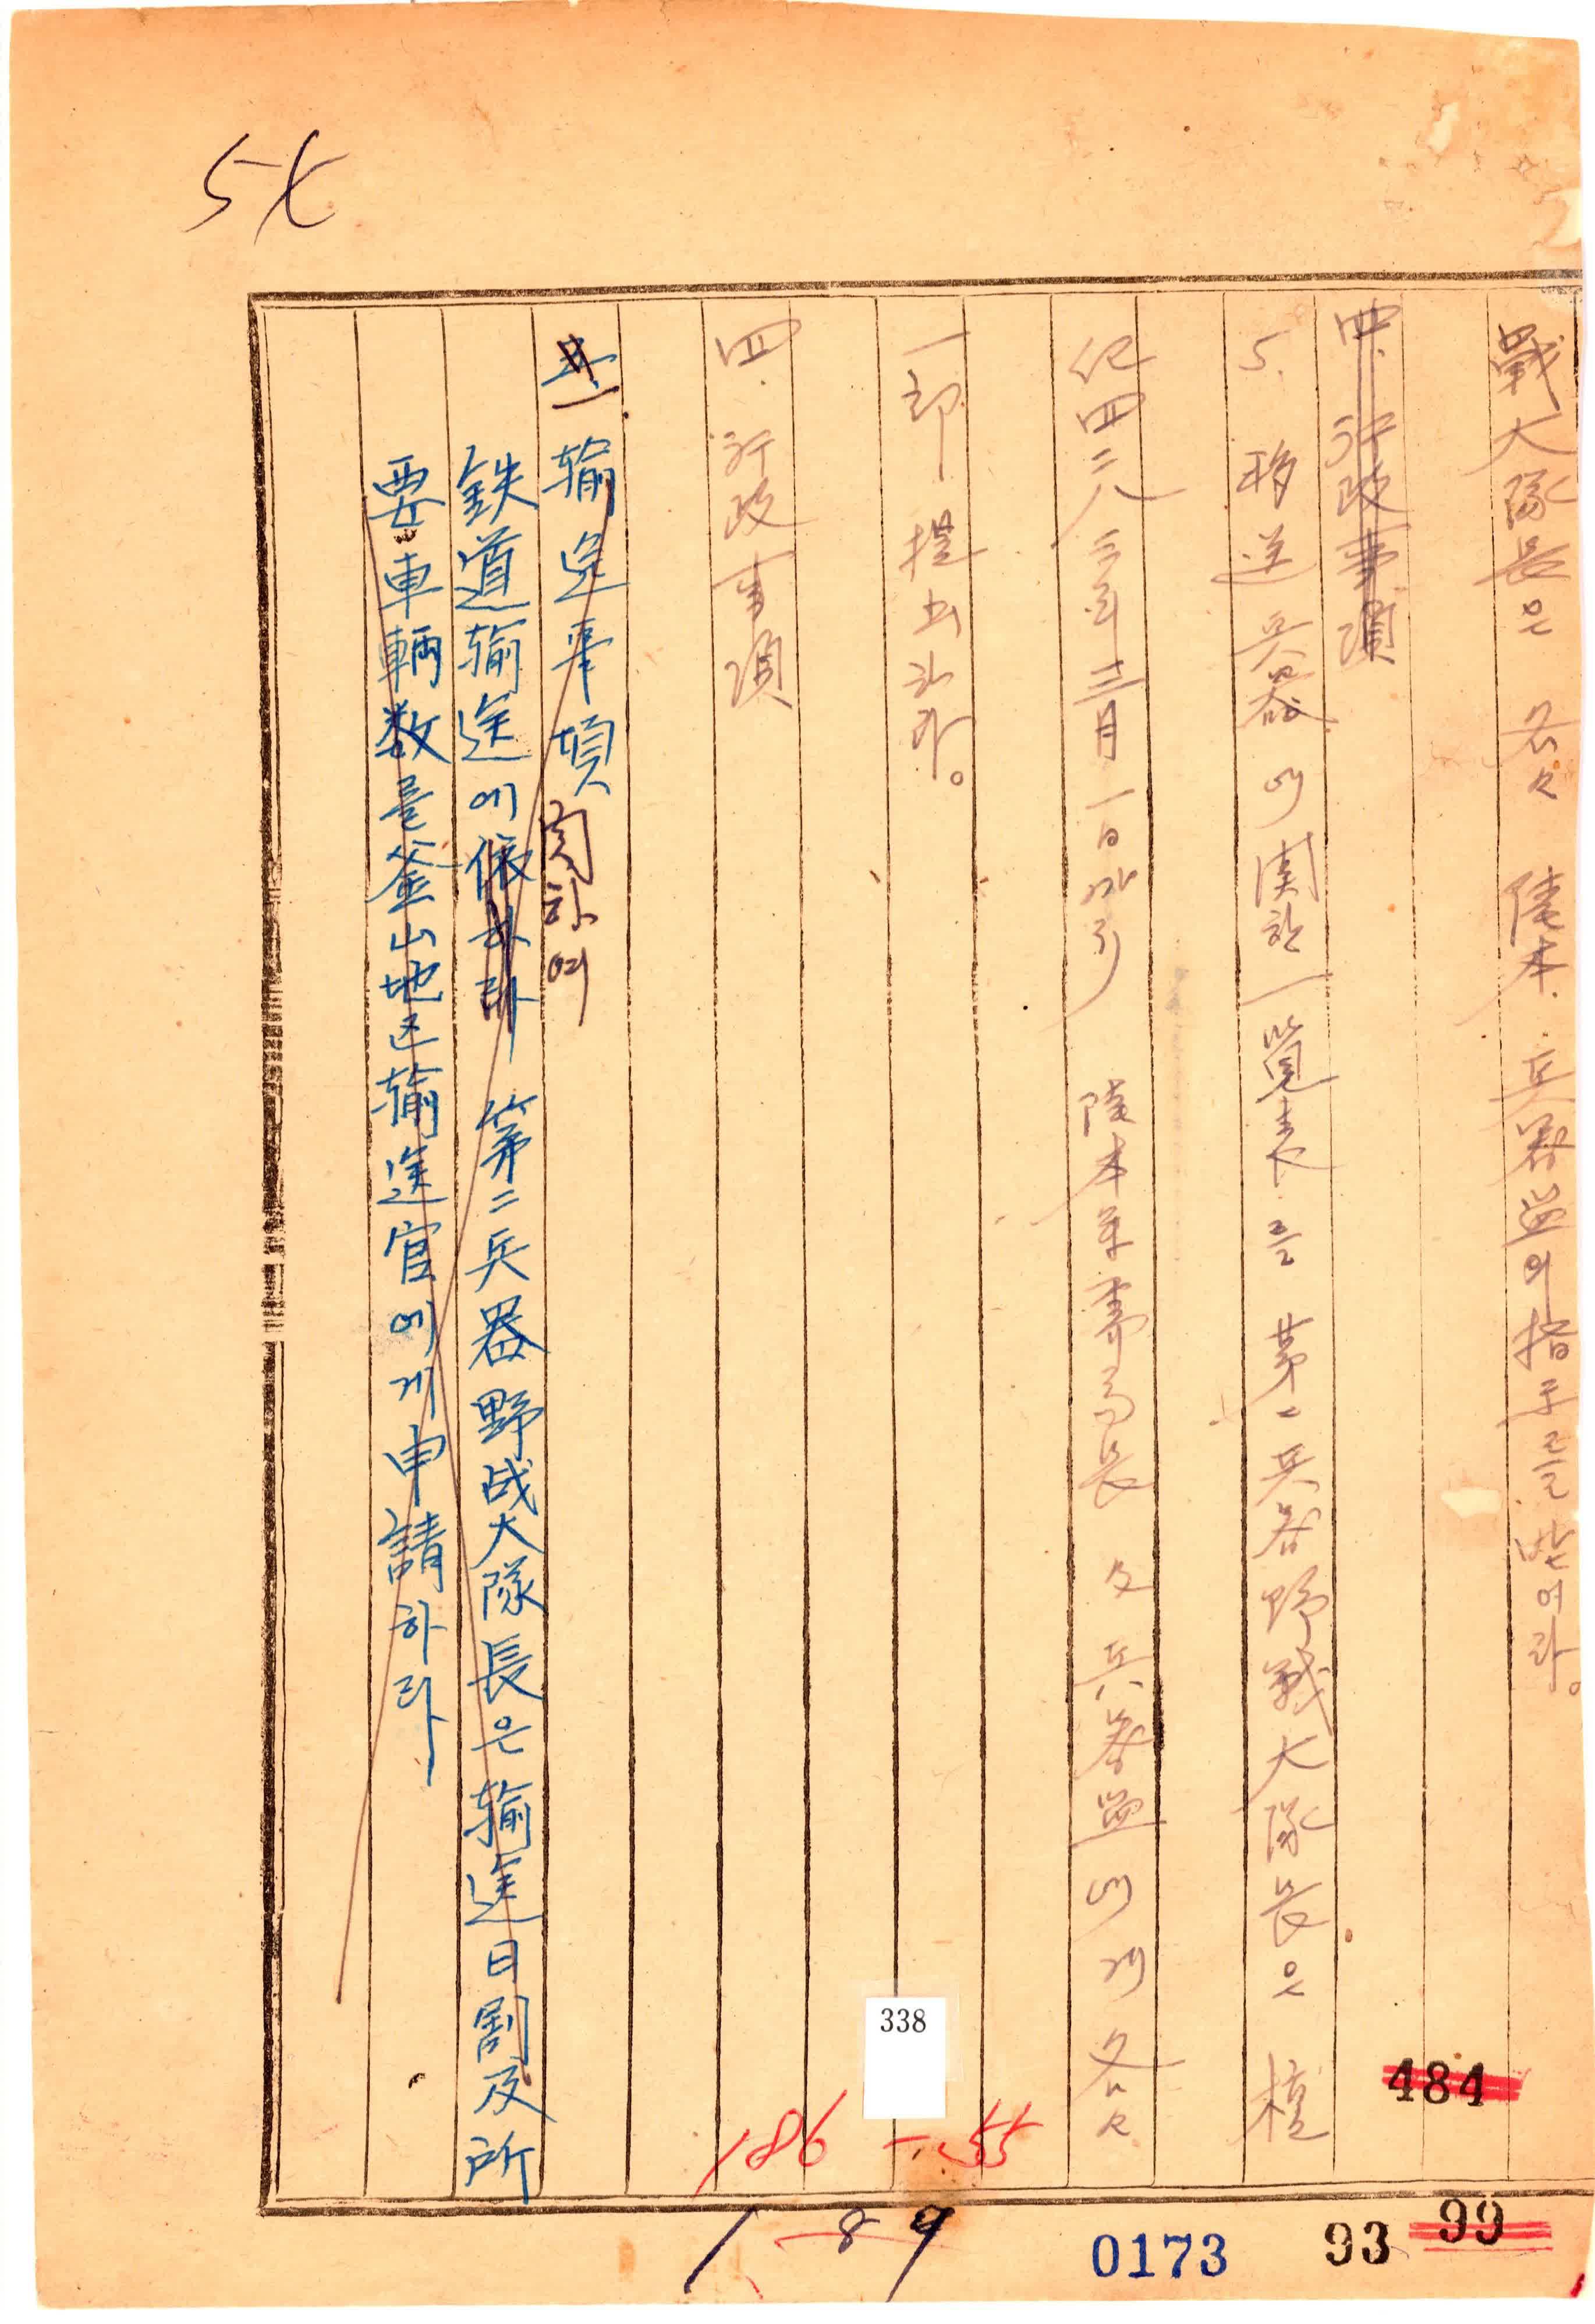 戰大隊長은 各々 陸本 兵器監의 指示를 받으라。
四. 行政事項
5. 移送兵器에 関한 一覧表를 第二兵器野戰大隊長은 檀
紀四二八三年三月一日까지 陸本 長 及 兵器監에게 各々
一部 提出하라。
四. 行政事項
輸送事項 関하여
鉄道輸送에 依하라 第二兵器野战大隊長은 輸送日割及所
要車輌数를 釜山地区輸送官에게 申請하라
338
484
186-55
1-89
0173
93
99